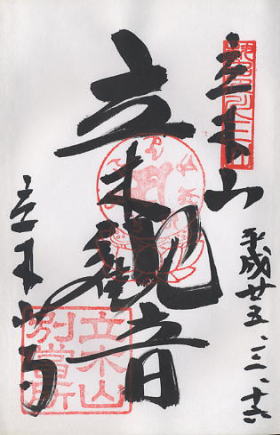 立木山
平成廿五、三、十六
立木観音
立木寺
立木山
別當所